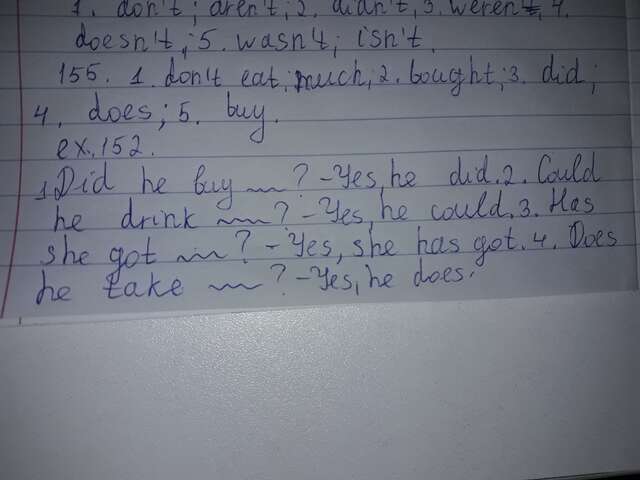 1. don't; aren't; 2. didn't, 3. weren't, 4.
doesn't; 5. wasn't; isn't.
155. 1. don't eat; much; 2. bought; 3. did;
4. does; 5. buy.
ex. 152.
1. Did he buy ~~? - Yes, he did. 2. Could
he drink ~~? - Yes, he could. 3. Has
she got ~~? - Yes, she has got. 4. Does
he take ~~? - Yes, he does.